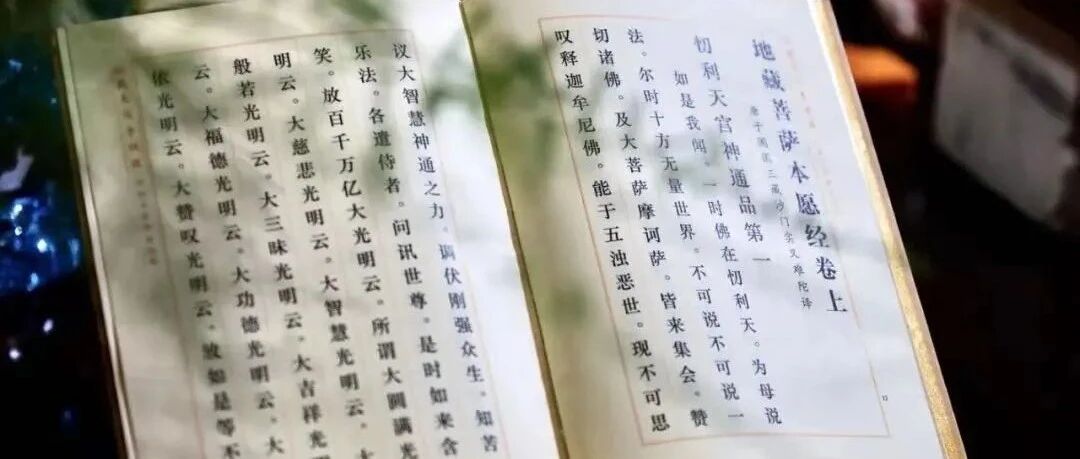 地藏菩萨本愿经卷上
唐于阗国三藏沙门实叉难陀译
忉利天宫神通品第一
如是我闻。一时佛在忉利天。为母说
法。尔时十方无量世界。不可说不可说一
切诸佛。及大菩萨摩诃萨。皆来集会。赞
叹释迦牟尼佛。能于五浊恶世。现不可思
议大智慧神通之力。调伏刚强众生。知苦
乐法。各遣侍者。问讯世尊。是时如来含
笑。放百千万亿大光明云。所谓大圆满光
明云。大慈悲光明云。大智慧光明云。大
般若光明云。大三昧光明云。大吉祥光
云。大福德光明云。大功德光明云。大
依光明云。大赞叹光明云。放如是等不